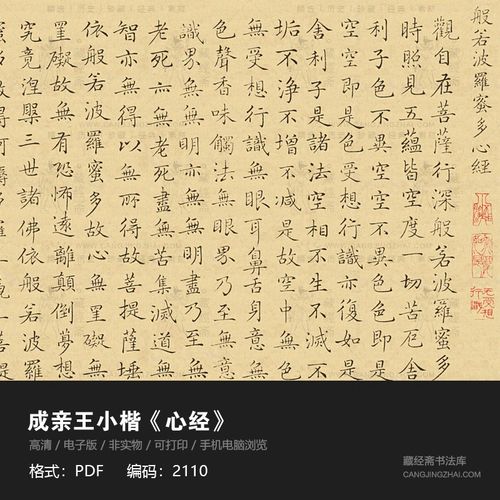 般若波羅蜜多心經
觀自在菩薩行深般若波羅蜜多
時照見五蘊皆空度一切苦厄舍
利子色不異空空不異色色即是
空空即是色受想行識亦復如是
舍利子是諸法空相不生不滅不
垢不淨不增不減是故空中無色
無受想行識無眼耳鼻舌身意無
色聲香味觸法無眼界乃至無意
識界無無明亦無無明盡乃至無
老死亦無老死盡無苦集滅道無
智亦無得以無所得故菩提薩埵
依般若波羅蜜多故心無罣礙無
罣礙故無有恐怖遠離顛倒夢想
究竟涅槃三世諸佛依般若波羅
成亲王小楷《心经》
高清 / 电子版 / 非实物 / 可打印 / 手机电脑浏览
格式：PDF 编码：2110
藏经斋书法库
CANGJINGZHAI.COM